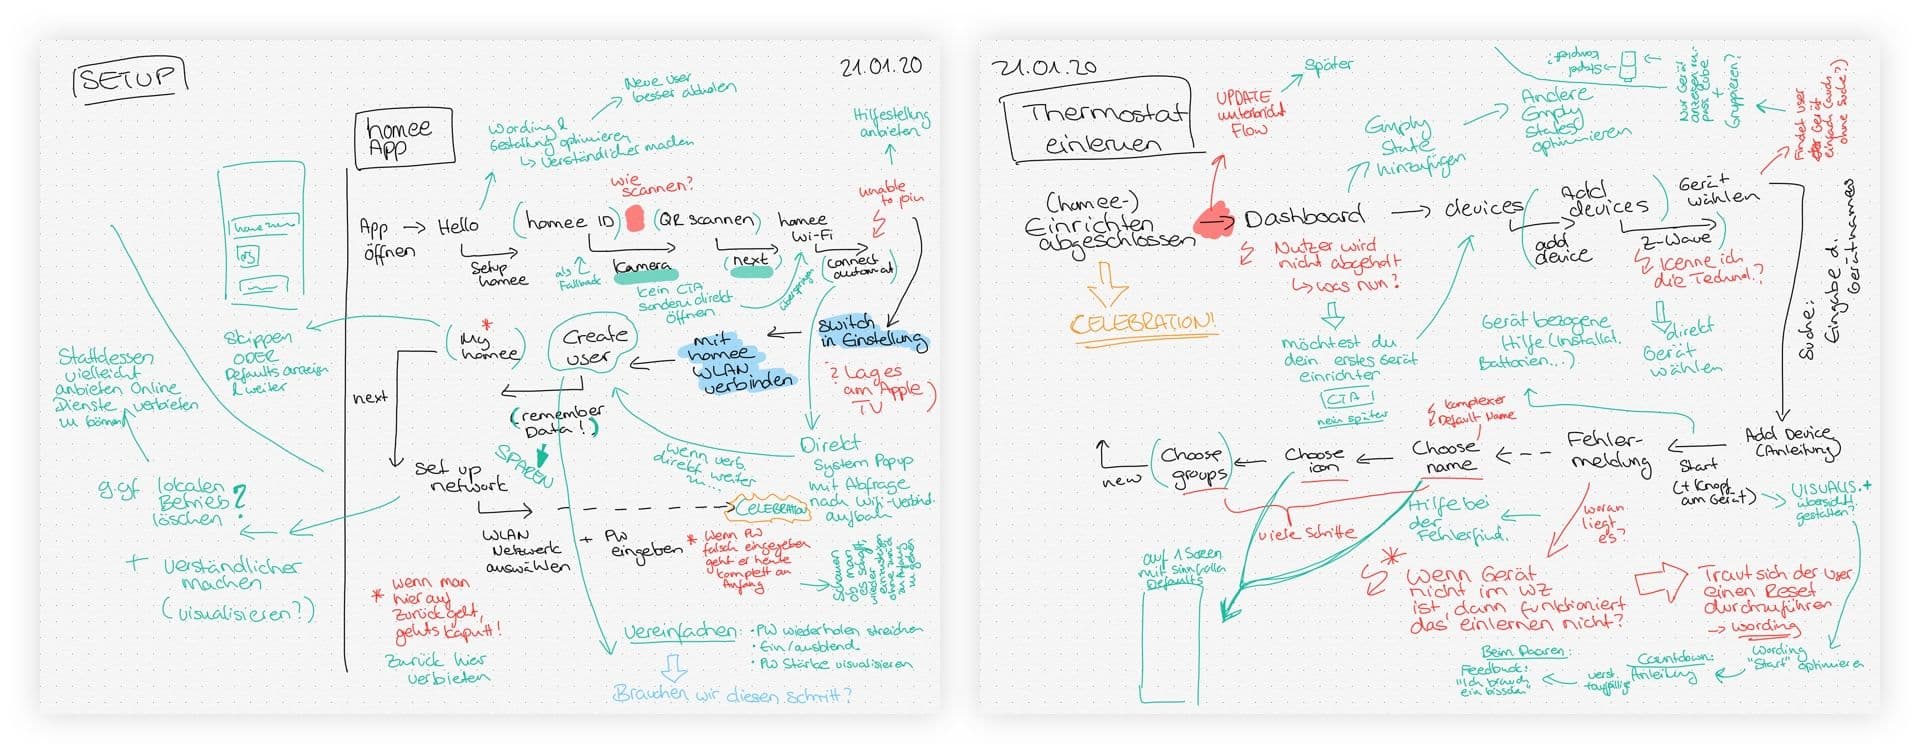 SETUP
21.01.20
homee
App
Neue User
besser abholen
Wording &
Gestaltung optimieren
↳ verständlicher machen
Hilfestellung
anbieten
wie
scannen?
unable
to join
App → Hello
öffnen
Setup
homee
(homee ID)
(QR scannen)
homee
Wi-Fi
als
Fallback
Kamera
(next)
(connect
automat)
kein CTA
sondern direkt
öffnen
überspringen
(My *
homee)
Create
user
mit
homee
WLAN
verbinden
switch
in Einstellung
? Lags
am Apple
TV)
Skippen
ODER
Defaults anzeigen
& weiter
Stattdessen
vielleicht
anbieten Online
Dienste verbieten
zu können
next
(remember
Data!)
SPAREN
wenn verb.
direkt weiter
zu...
Direkt
System Popup
mit Abfrage
nach Wifi-Verbind.
aufbau
ggf lokalen
Betrieb
löschen?
+ verständlicher
machen
(visualisieren?)
Set up
network
WLAN
Netzwerk
auswählen
+ PW
eingeben
CELEBRATION
* wenn PW
falsch eingegeben
geht er heute
komplett an
Anfang
Schauen
ob man
es schafft
wieder
einzusteigen
ohne zurück
zum Anfang
zu gehen
* wenn man
hier auf
Zurück geht,
gehts kaputt!
Zurück hier
verbieten
Vereinfachen: • PW wiederholen streichen
• Ein/ausblend.
• PW Stärke visualisieren
Brauchen wir diesen Schritt?
21.01.20
Thermostat
einlernen
UPDATE
unterbricht
Flow
Später
Empty
State
hinzufügen
Andere
Empty
States
optimieren
Stepd
kompliz.?
Nur Gerät
anzeigen in
passt Cube
+
Gruppieren?
Findet user
der Gerät
einfach (auch
ohne Suche?)
(homee-)
Einrichten
abgeschlossen
CELEBRATION!
Dashboard
devices
(Add
devices)
add
device
Gerät
wählen
Z-Wave)
Nutzer wird
nicht abgeholt
↳ was nun?
Kenne ich
die Technol.?
möchtest du
dein erstes Gerät
einrichten
CTA!
nein später
Gerät bezogene
Hilfe (Installat.
Batterien...)
direkt
Gerät
wählen
Suche:
Eingabe d.
Gerätnames
komplexer
Default Name
new
(Choose
groups)
Choose
icon
Choose
name
Fehler-
meldung
Start
(+ Knopf
am Gerät)
Add Device
(Anleitung)
viele Schritte
Hilfe bei
der
Fehlerfind.
woran
liegt
es?
VISUALIS. +
übersichtl.
gestalten?
auf 1 Screen
mit sinnvollen
Defaults
* Wenn Gerät
nicht im WZ
ist, dann funktioniert
das einlernen nicht?
Traut sich der User
einen Reset
durchzuführen
→ Wording
Wording
"Start" optimieren
Countdown:
Anleitung
verst.
+auffällig
Beim Pairen:
Feedback:
"Ich brauch
ein bisschen"